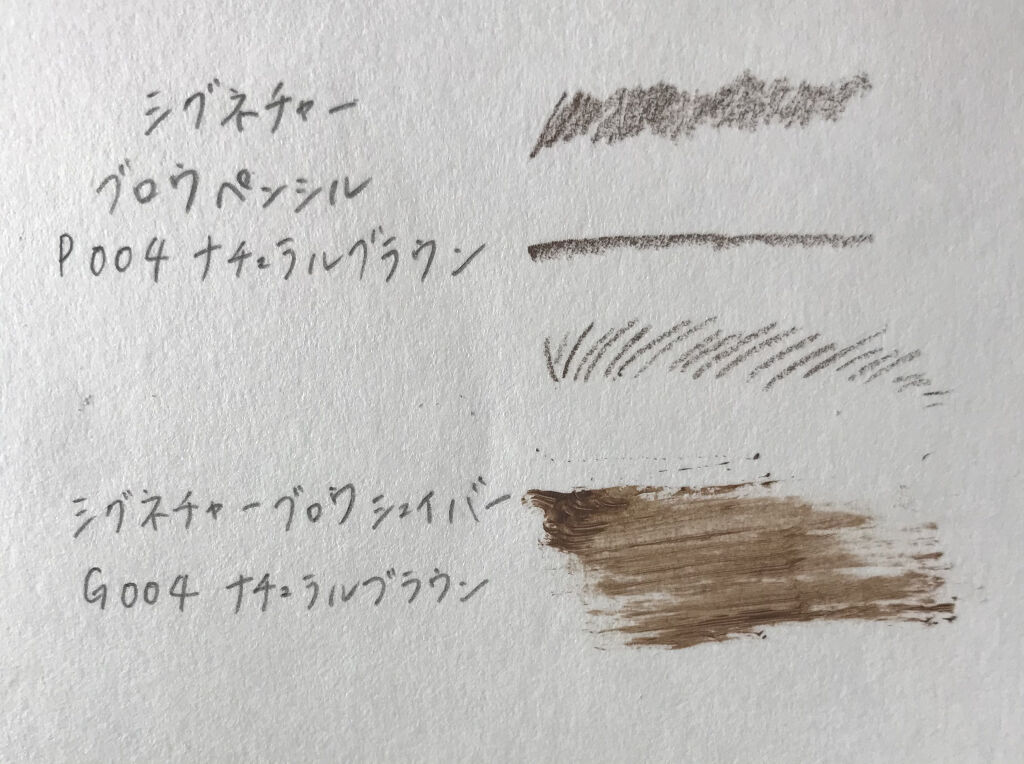 シグネチャー
ブロウペンシル
P004 ナチュラルブラウン
シグネチャーブロウシェイパー
G004 ナチュラルブラウン